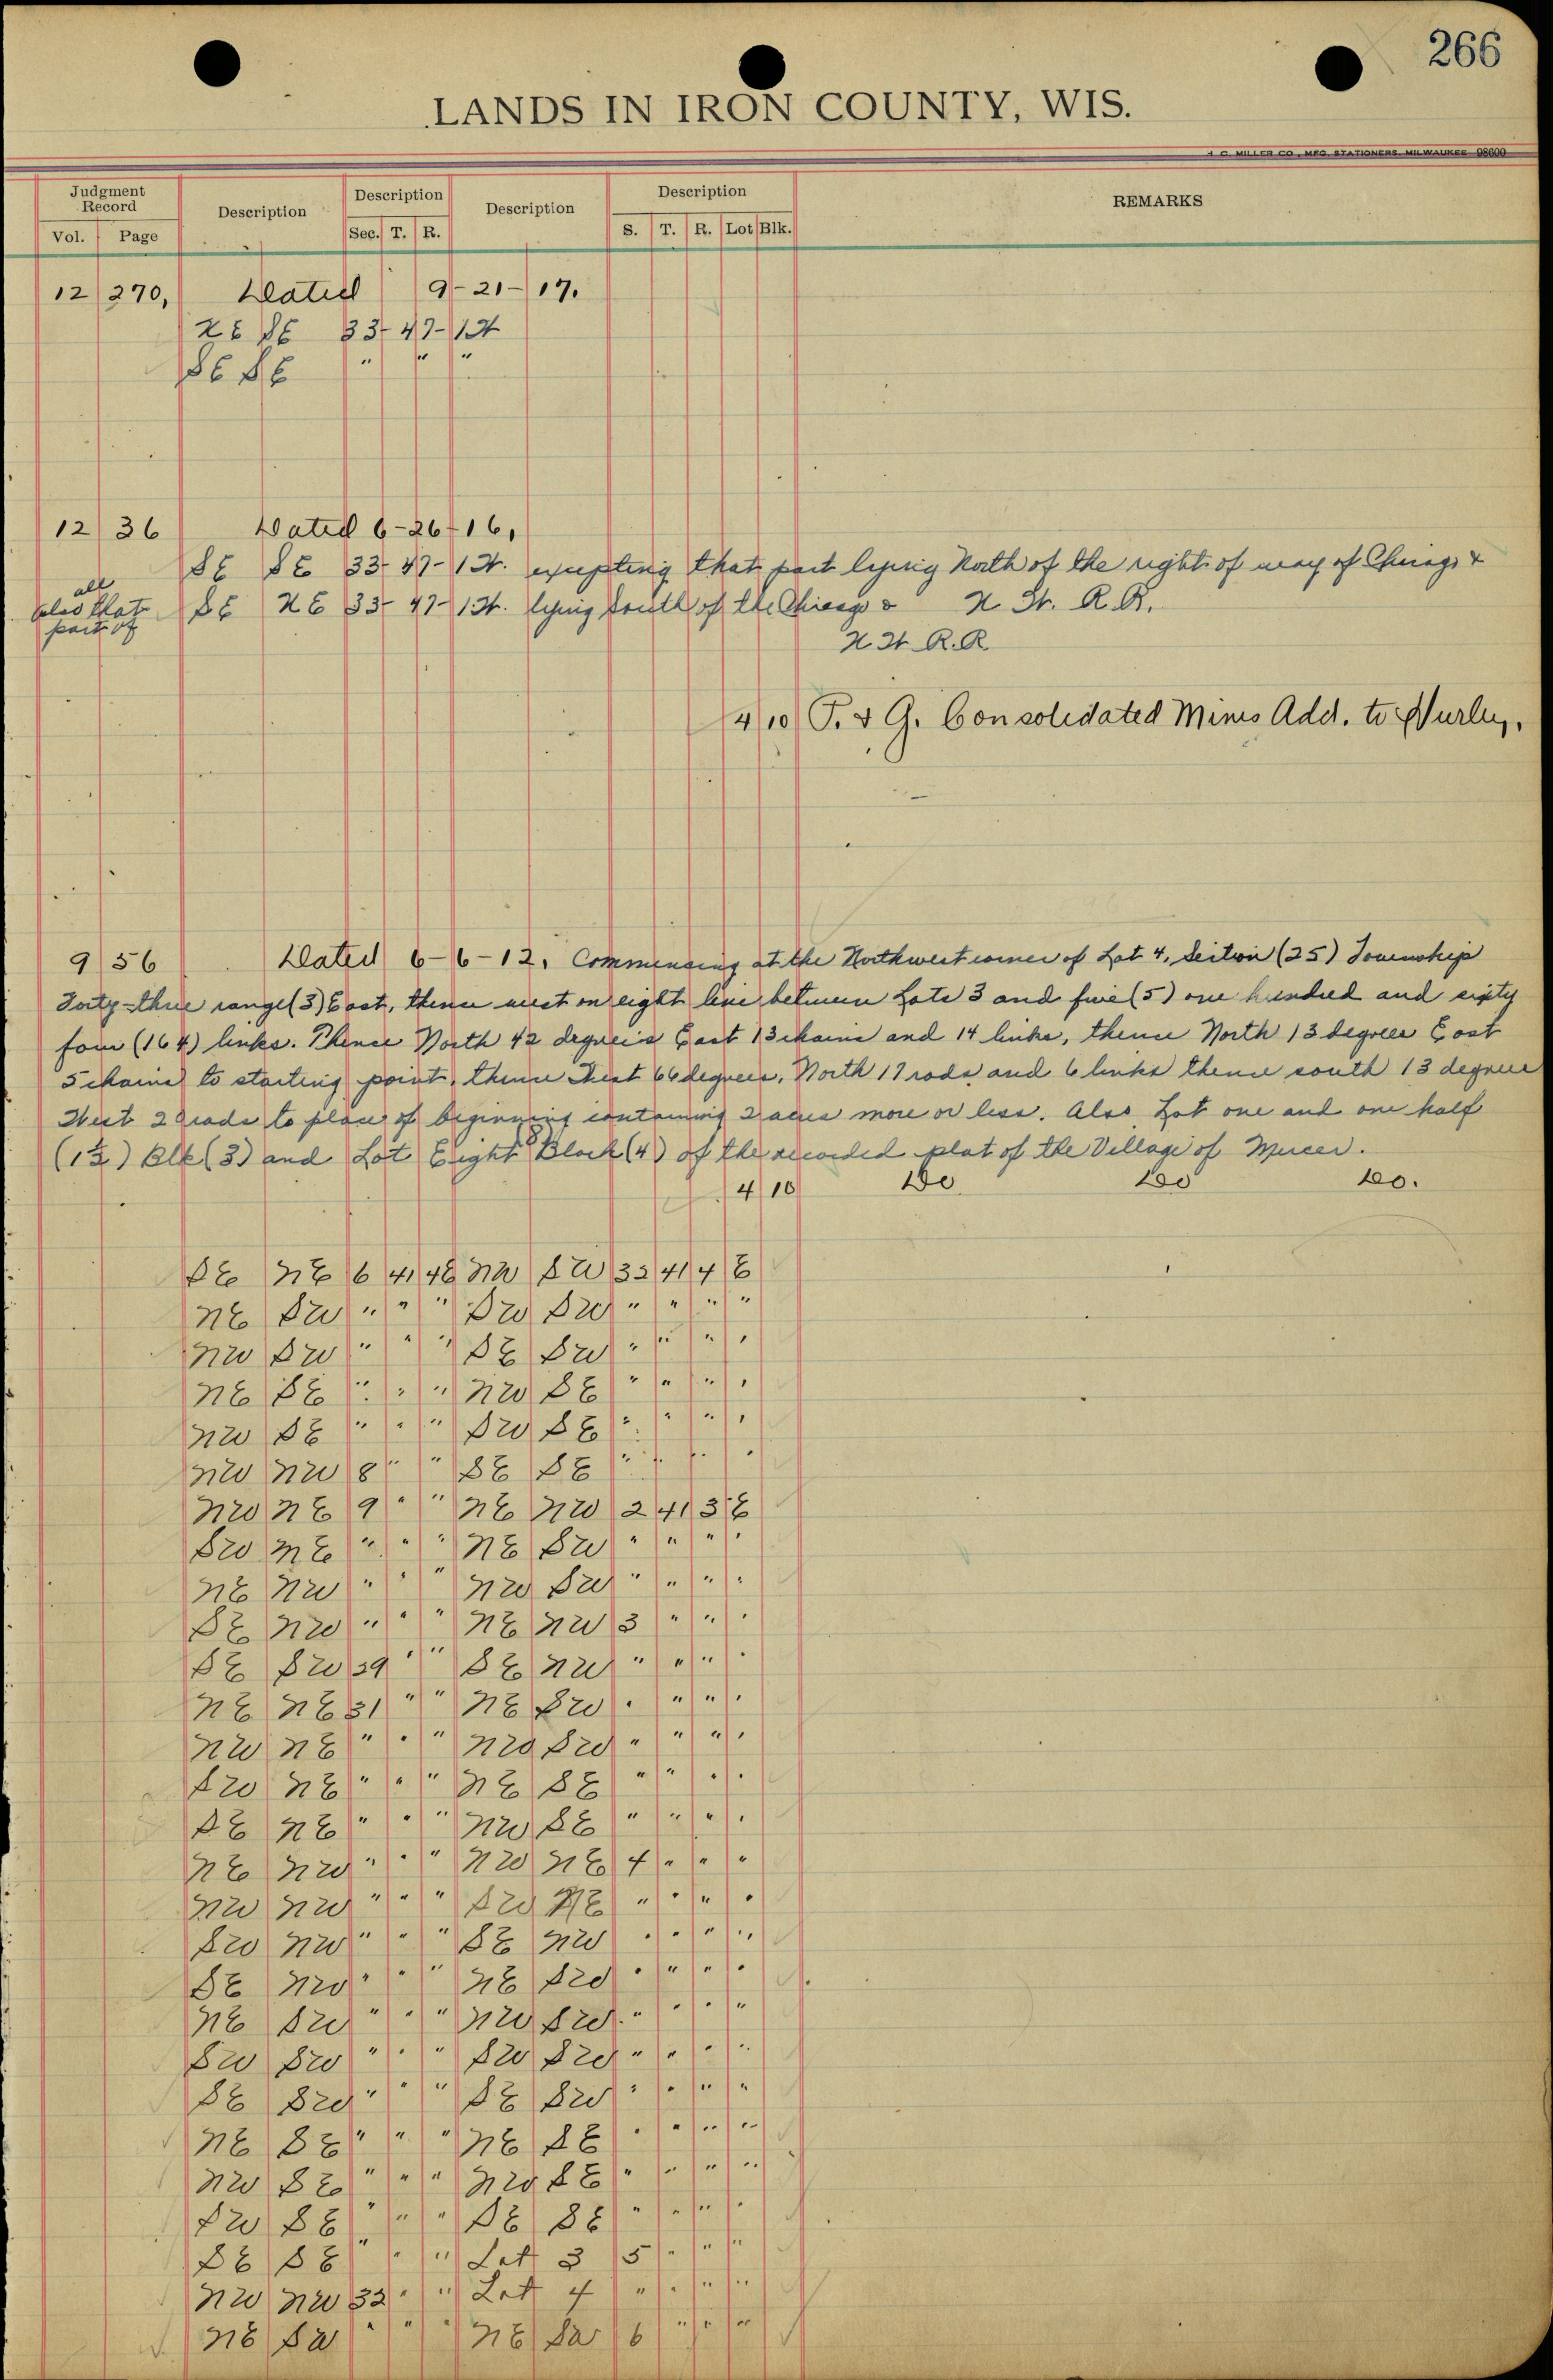 266
LANDS IN IRON COUNTY, WIS.
H. C. MILLER CO., MFG. STATIONERS. MILWAUKEE 98600
Judgment Record Description Description Description Description REMARKS
Vol. Page Sec. T. R. S. T. R. Lot Blk.
12 270, Dated 9-21-17.
NE SE 33-47-1W
SE SE " " "
12 36 Dated 6-26-16,
SE SE 33-47-1W. excepting that part lying North of the right of way of Chicago &
all also that part of SE NE 33-47-1W. lying South of the Chicago & N W. R.R.
N W R.R.
4 10 P. & G. Consolidated Mines Add. to Hurley,
9 56 Dated 6-6-12, Commencing at the Northwest corner of Lot 4, Section (25) Township
Forty-three range (3) East, thence west on eight line between Lots 3 and five (5) one hundred and sixty
four (164) links. Thence North 42 degrees East 13 chains and 14 links, thence North 13 degrees East
5 chains to starting point, thence West 66 degrees, North 17 rods and 6 links thence south 13 degrees
West 2 rods to place of beginning containing 2 acres more or less. Also Lot one and one half
(1½) Blk (3) and Lot Eight (8) Block (4) of the recorded plat of the Village of Mercer.
4 10 Do Do Do.
SE NE 6 41 4E NW SW 33 41 4 E
NE SW " " " SW SW " " " "
NW SW " " " SE SW " " " "
NE SE " " " NW SE " " " "
NW SE " " " SW SE " " " "
NW NW 8 " " SE SE " " " "
NW NE 9 " " NE NW 2 41 3 E
SW NE " " " NE SW " " " "
NE NW " " " NW SW " " " "
SE NW " " " NE NW 3 " " "
SE SW 29 " " SE NW " " " "
NE NE 31 " " NE SW " " " "
NW NE " " " NW SW " " " "
SW NE " " " NE SE " " " "
SE NE " " " NW SE " " " "
NE NW " " " NW NE 4 " " "
NW NW " " " SW NE " " " "
SW NW " " " SE NW " " " "
SE NW " " " NE SW " " " "
NE SW " " " NW SW " " " "
SW SW " " " SW SW " " " "
SE SW " " " SE SW " " " "
NE SE " " " NE SE " " " "
NW SE " " " NW SE " " " "
SW SE " " " SE SE " " " "
SE SE " " " Lot 3 5 " " "
NW NW 32 " " Lot 4 " " " "
NE SW " " " NE SW 6 " " "